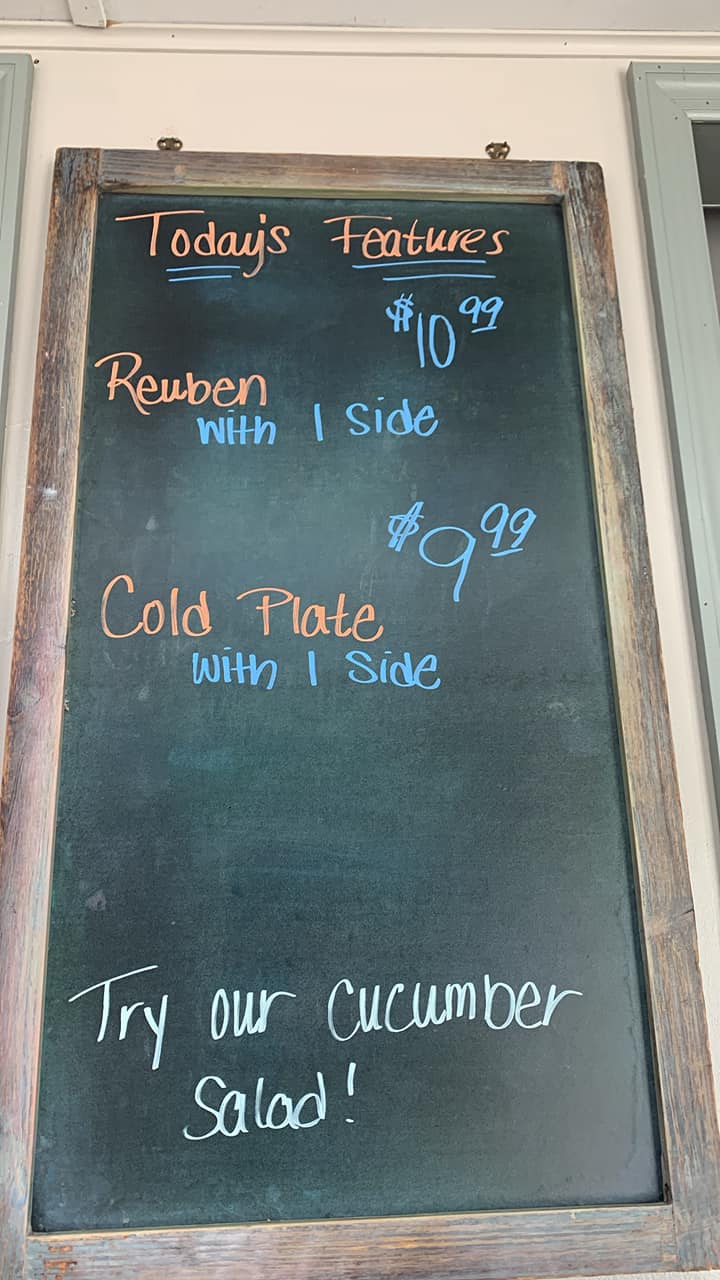 Today's Features
$10 99
Reuben
with 1 side
$9 99
Cold Plate
with 1 side
Try our cucumber
Salad!